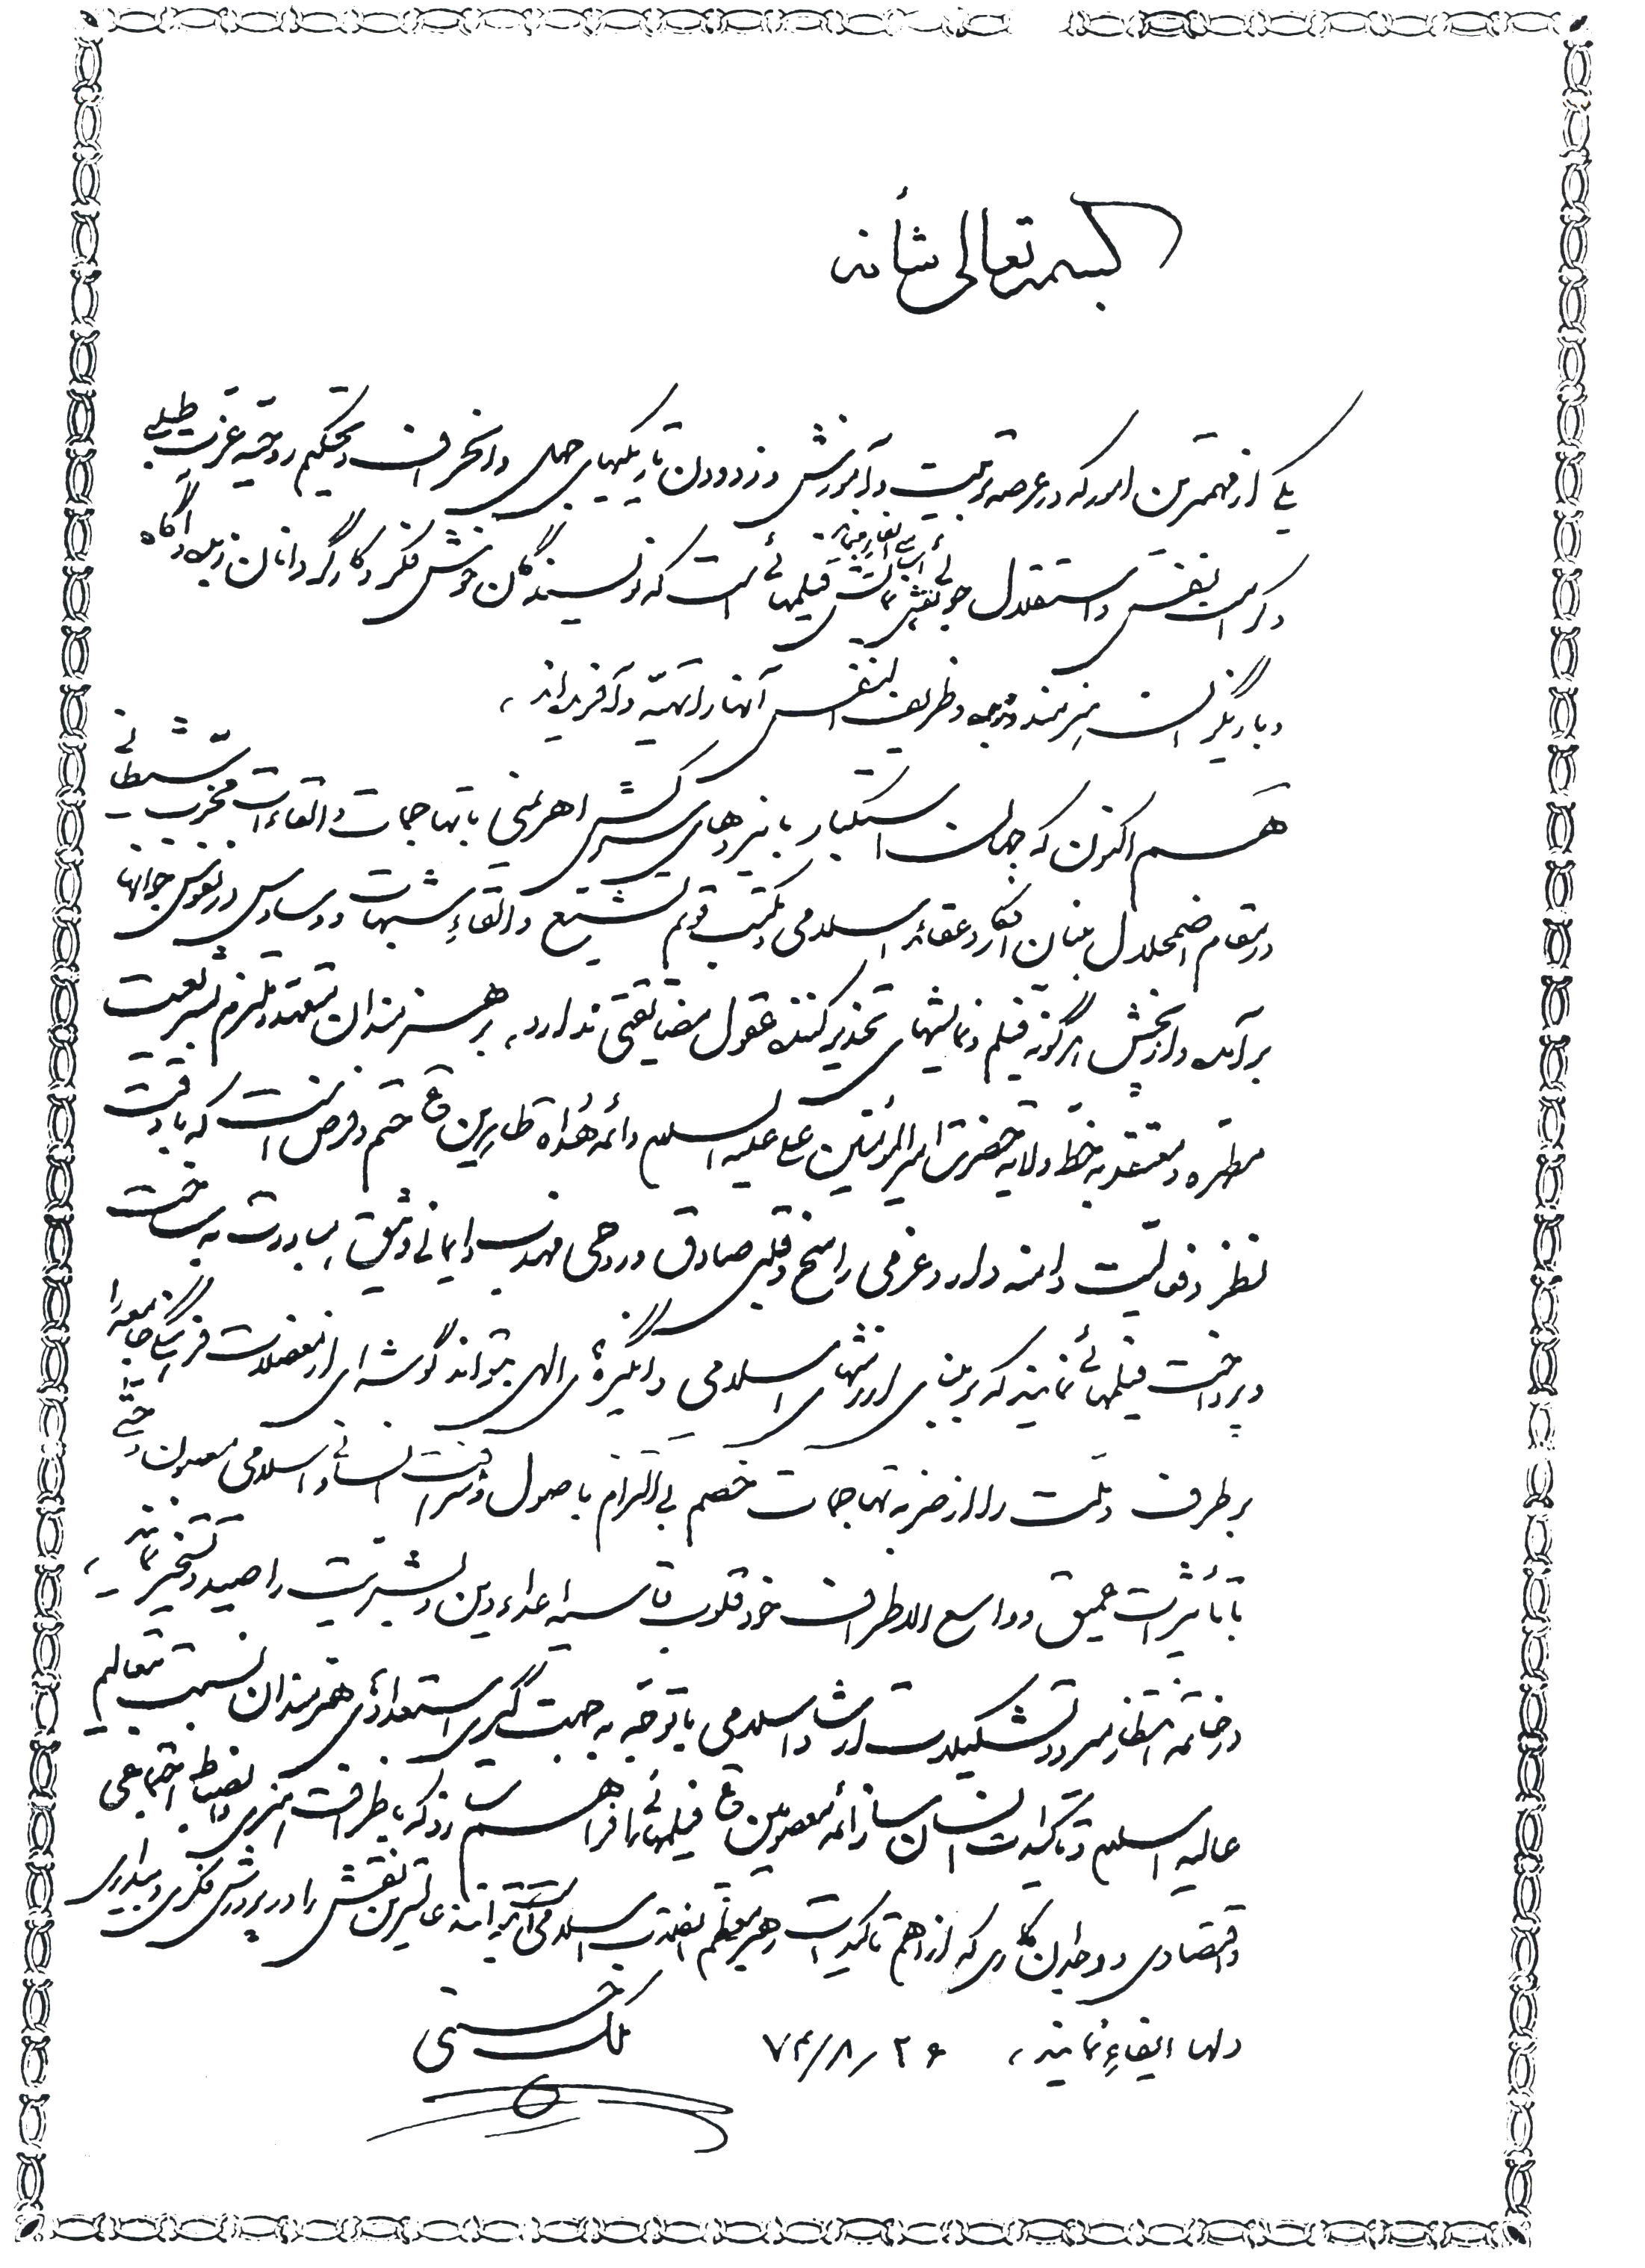 بسمه تعالی شأنه
یکی از مهمترین امور که در عرصه تربیت و آموزش و زدودن تاریکیهای جهل و انحراف و تحکیم روحیه عزت طلبی
و کرامت نفس و استقلال جوئی نقش اساسی ایفا مینماید فیلمهائی است که نویسندگان خوش فکر و کارگردانان زبده و آگاه
و بازیگران هنرمند و ظریف النفس آنها را تهیّه و آفریده‌اند ،
هم اکنون که جهان استکبار با نیروهای سرکش اهریمنی با تهاجمات و القاءات مخرب شیطانی
در مقام اضمحلال بنیان افکار و عقائد اسلامی و مکتب قویم تشیّع و القاءِ شبهات و وساوس در نفوس جوانها
برآمده و از پخش هرگونه فیلم و نمایشهای تخدیر کننده عقول مضایقتی ندارد، بر هنرمندان متعهد و ملتزم شریعت
مطهره و معتقد به خطّ ولایه حضرت امیرالمؤمنین علی علیه السلام و ائمه هُداة طاهرین ع حتم و فرض است که با دقت
نظر و فعالیت دامنه دار و عزمی راسخ و قلبی صادق و روحی مهذب و ایمانی وثیق ، مبادرت به ساخت
و پرداخت فیلمهائی نمایند که بر مبنای ارزشهای اسلامی و انگیزهٔ الهی بتواند گوشه‌ای از معضلات فرهنگی جامعه را
برطرف و ملّت را از ضربه تهاجمات خصم بی التزام باصول و شرافت انسانی و اسلامی مصون و حتّی
با تأثیرات عمیق و واسع الاطراف خود قلوب قاسیه اعداء دین و بشریّت را صید و تسخیر نماید ،
در خاتمه انتظار میرود تشکیلات ارشاد اسلامی با توجّه به جهت گیری استعدادهای هنرمندان نسبت به تعالیم
عالیه اسلام و تأکیدات انسان ساز ائمه معصومین ع فیلمهائی را فراهم سازند که با ظرافت هنری و انضباط اجتماعی
و اقتصادی و وجدان کاری که از اهم تأکیدات رهبر معظم انقلاب اسلامی است بتوانند عالیترین نقش را در پرورش فکری و بیداری
دلها ایفاءِ نمایند ، ۷۴/۸/۲۶
ملک حسینی